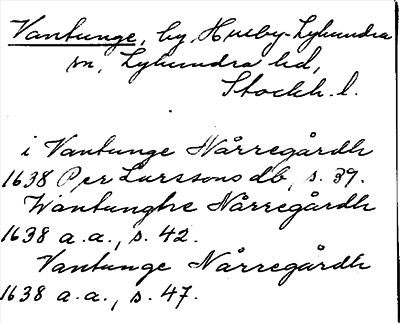 Vantunge, by, Husby-Lyhundra
sn, Lyhundra hd,
Stockh. l.
i Vantunge Nårregårdh
1638 Per Larssons db, s. 39.
Wantunghe Nårregårdh
1638 a.a., s. 42.
Vantunge Nårregårdh
1638 a.a., s. 47.